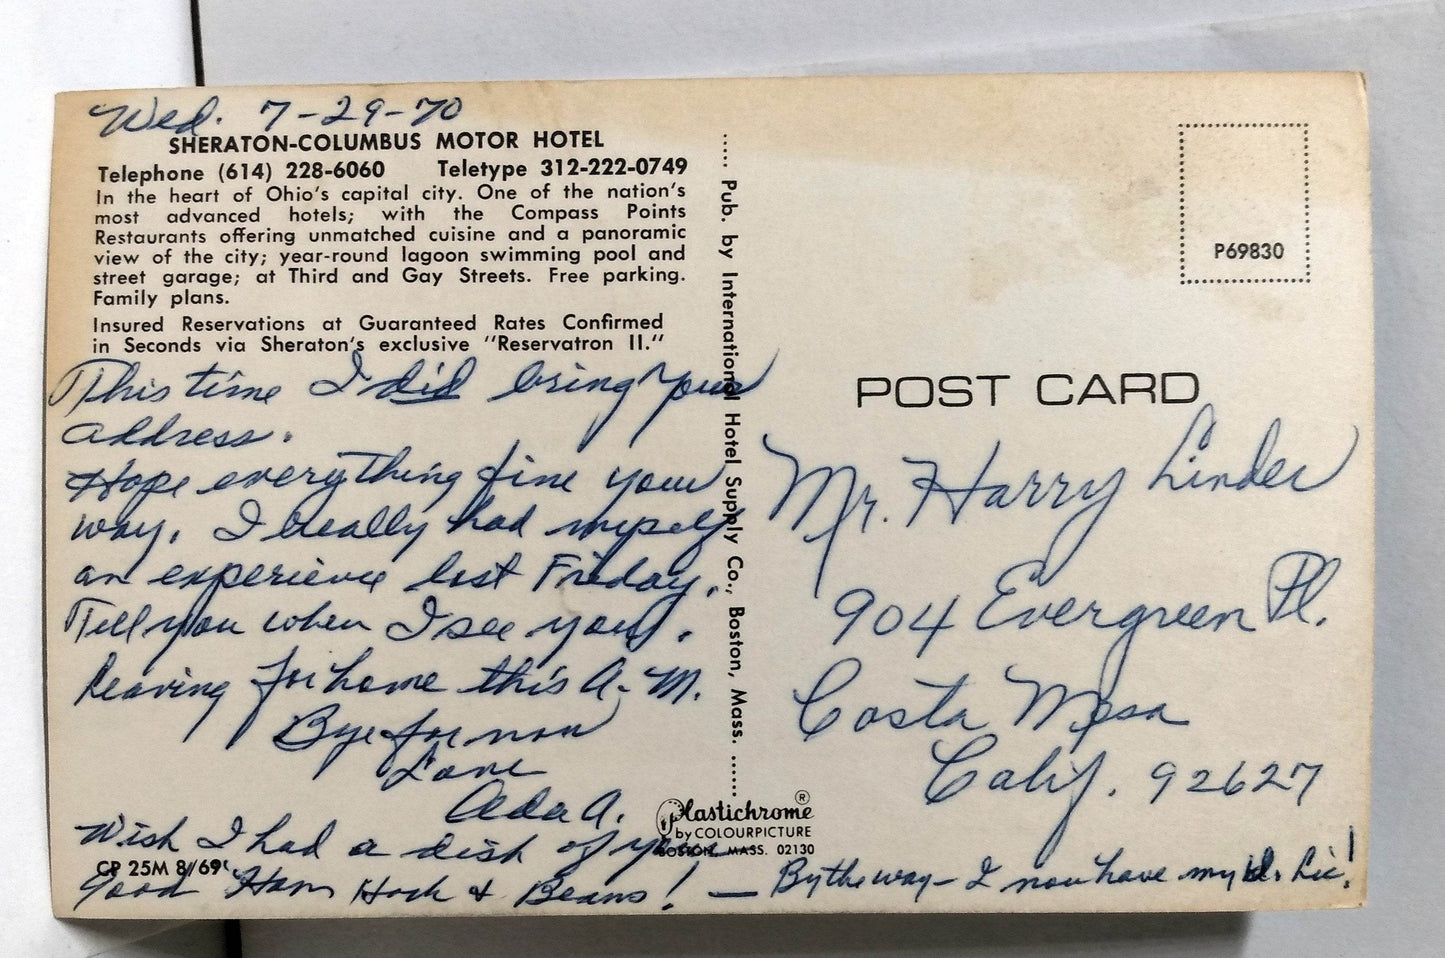 Wed. 7-29-70
SHERATON-COLUMBUS MOTOR HOTEL
Telephone (614) 228-6060 Teletype 312-222-0749
In the heart of Ohio's capital city. One of the nation's
most advanced hotels; with the Compass Points
Restaurants offering unmatched cuisine and a panoramic
view of the city; year-round lagoon swimming pool and
street garage; at Third and Gay Streets. Free parking.
Family plans.
Insured Reservations at Guaranteed Rates Confirmed
in Seconds via Sheraton's exclusive "Reservatron II."
This time I did bring your
address.
Hope everything fine your
way. I really had myself
an experience last Friday.
Tell you when I see you.
Leaving for home this A.M.
Bye for now
Love
Ada A.
Wish I had a dish of your
CP 25M 8/69
Good Ham Hock & Beans! — By the way - I now have my d. Lic!
..... Pub. by International Hotel Supply Co., Boston, Mass. ......
Plastichrome ®
by COLOURPICTURE
BOSTON, MASS. 02130
P69830
POST CARD
Mr. Harry Linder
904 Evergreen Pl.
Costa Mesa
Calif. 92627